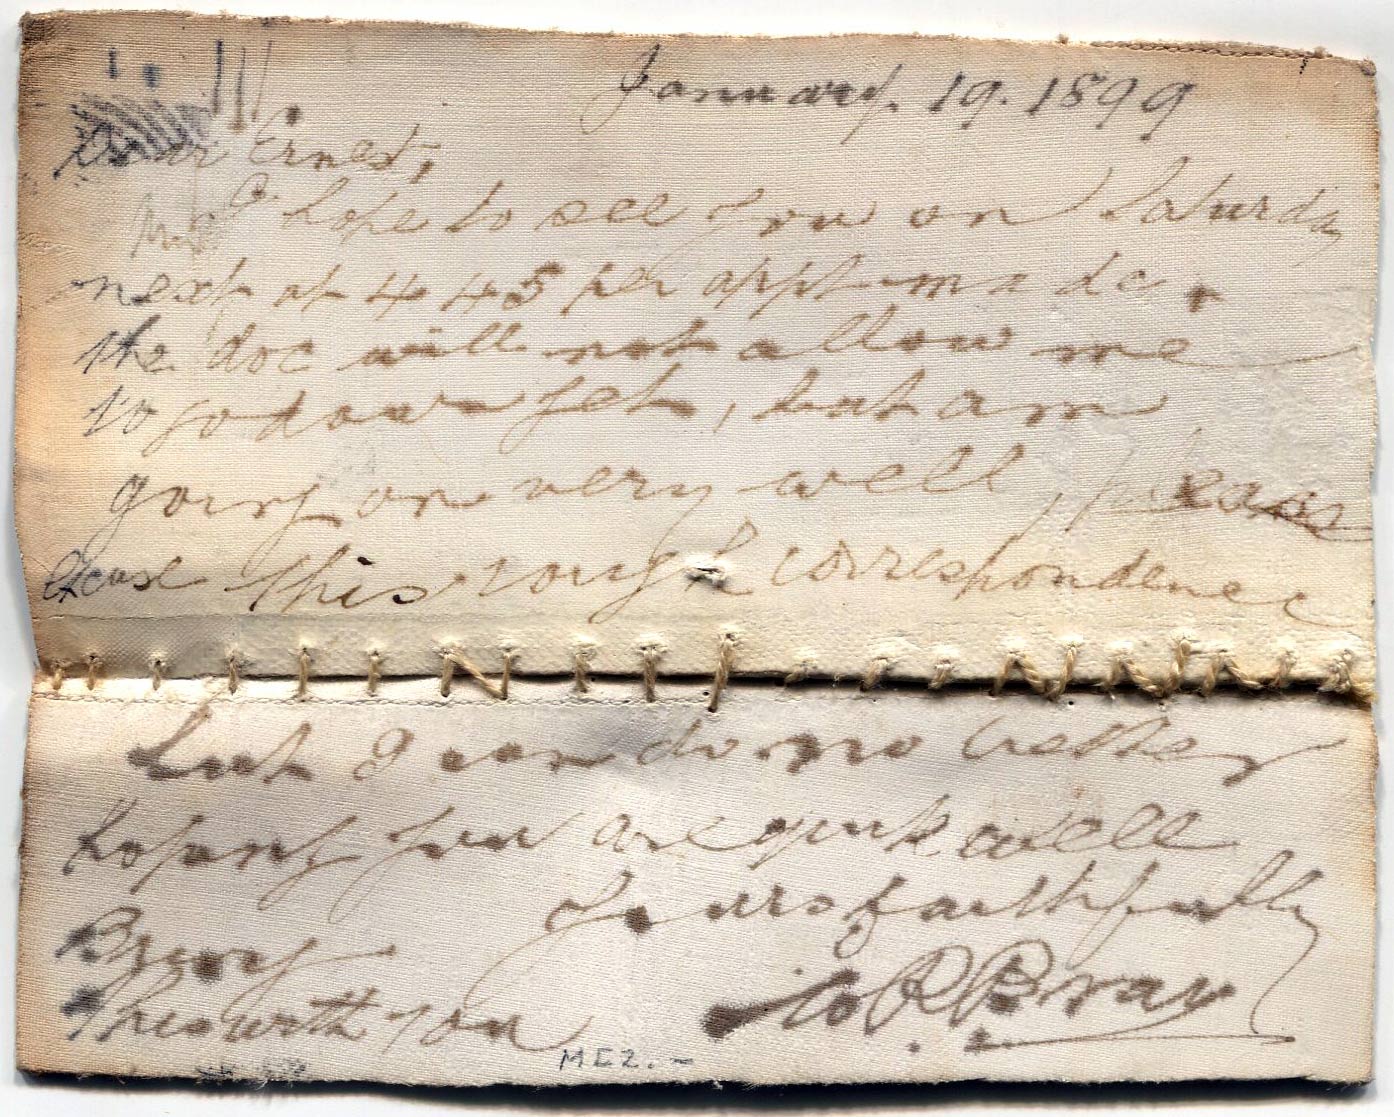 January. 19. 1899
Dear Ernest,
hope to see you on Saturday
next at 4 45 per appt made.
the doc will not allow me
to go down yet, but am
going on very well, Please
excuse this rough correspondence
but I can do no better
hoping you are quite well
Yours faithfully
Bring
this with you
Bray
ME2.-